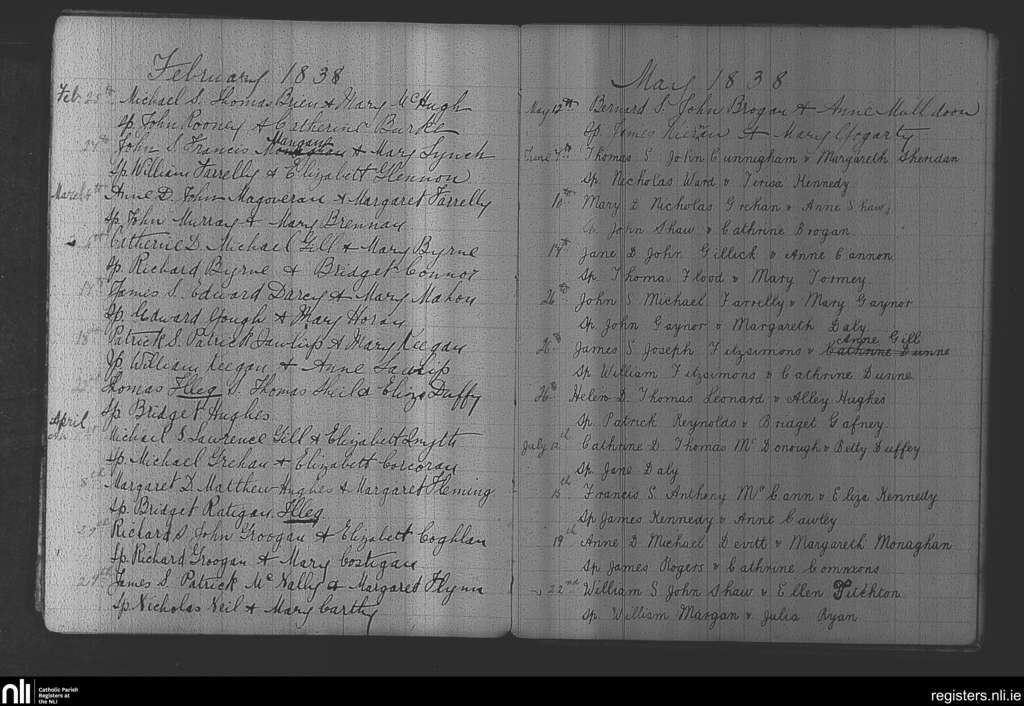 February 1838
Feb. 25th Michael S. Thomas Brien & Mary McHugh
Sp. John Rooney & Catherine Burke
27th John S. Francis Mangan & Mary Lynch
Sp. William Farrelly & Elizabett Glennon
March 4th Anne D. John Magoveran & Margaret Farrelly
Sp. John Murray & Mary Brennan
Catherine D. Michael Gill & Mary Byrne
Sp. Richard Byrne & Bridget Connor
James S. Edward Darcy & Mary Mahon
Sp. Edward Gough & Mary Horan
18th Patrick S. Patrick Lawlup & Mary Keegan
Sp. William Keegan & Anne
Thomas Illeg. S. Thomas Sheild Eliza Duffy
Sp Bridget Hughes
April
Michael S. Lawrence Gill & Elizabett Smyth
Sp. Michael Grehan & Elizabett Corcoran
8th Margaret D. Matthew Hughes & Margaret Fleming
Sp. Bridget Ratigan. Illeg
27th Richard S. John Groogan & Elizabett Coghlan
Sp. Richard Groogan & Mary Costigan
29th James S. Patrick McNally & Margaret Flynn
Sp. Nicholas Neil & Mary Carthy
May 1838
May 12th Bernard S. John Brogan & Anne Mulldoon
Sp. James Kieran & Mary Fogarty
June 7th Thomas S John Cunnigham & Margareth Sheridan
Sp Necholas Ward & Terisa Kennedy
10th Mary D Nicholas Grehan & Anne Shaw
John Shaw & Cathrine Brogan
17th Jane D John Gillick & Anne Cannon
Sp. Thomas Flood & Mary Tormey
26th John S Michael Farrelly & Mary Gaynor
Sp. John Gaynor & Margareth Daly
Anne Gill
26th James S Joseph Fitzsimons & Cathrine Dunne
Sp William Fitzsimons & Cathrine Dunne
26 Helen D. Thomas Leonard & Alley Hughes
Sp. Patrick Reynolds & Bridget Gafney
July Cathrine D. Thomas McDonough & Betty Duffey
Sp Jane Daly
15th Francis S. Anthony McCann & Eliza Kennedy
Sp James Kennedy & Anne Cawley
19th Anne D Michael Devitt & Margareth Monaghan
Sp James Rogers & Cathrine Commons
22nd William S John Shaw & Ellen
Sp. William Mangan & Julia Ryan
nli Catholic Parish
Registers at
the NLI
registers.nli.ie